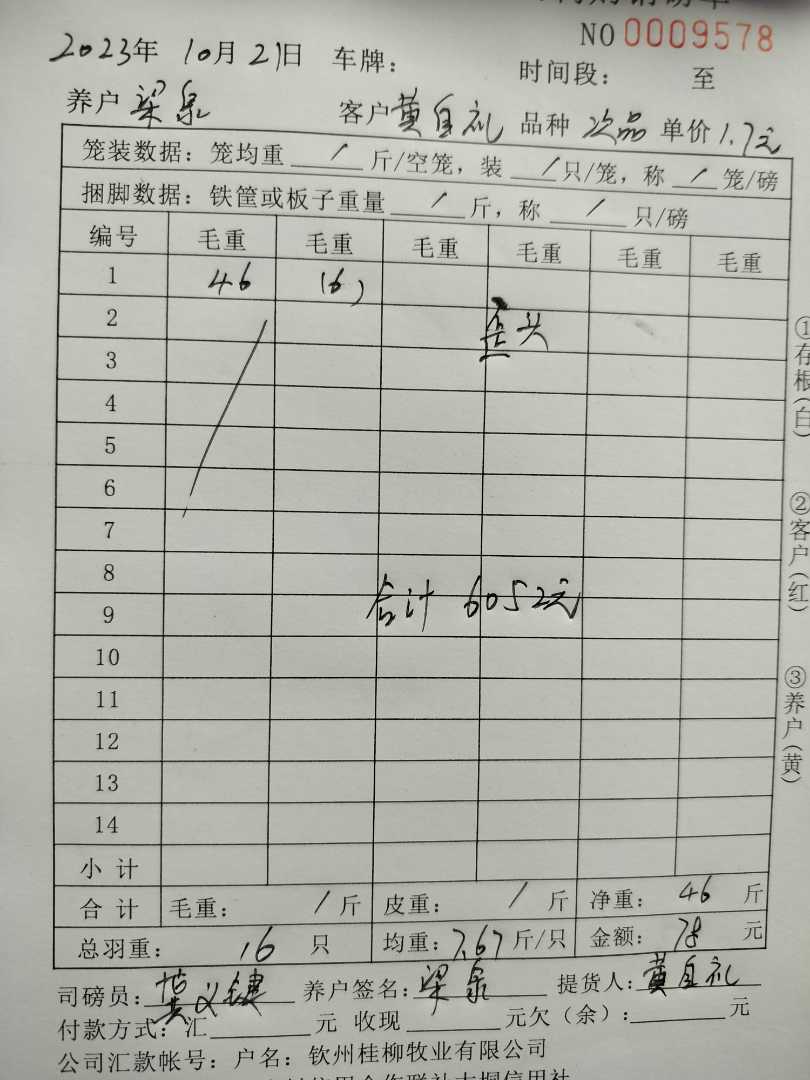 NO 0009578
2023年 10月21日 车牌: 时间段: 至
养户 梁泉 客户 黄自礼 品种 次品 单价 1.7元
笼装数据: 笼均重 / 斤/空笼, 装 / 只/笼, 称 / 笼/磅
捆脚数据: 铁筐或板子重量 / 斤, 称 / 只/磅
编号 毛重 毛重 毛重 毛重 毛重 毛重
1 46 (6)
2 歪头
3
4
5
6
7
8
合计 6052元
9
10
11
12
13
14
小计
合计 毛重: / 斤 皮重: / 斤 净重: 46 斤
总羽重: 16 只 均重: 7.67 斤/只 金额: 78 元
司磅员: 黄义健 养户签名: 梁泉 提货人: 黄自礼
付款方式: 汇 元 收现 元欠(余): 元
公司汇款帐号: 户名: 钦州桂柳牧业有限公司
①存根(白) ②客户(红) ③养户(黄)